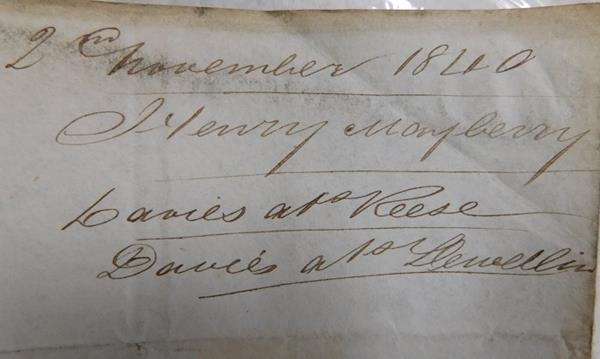 2 November 1840
Henry Mayberry
Davies ats Reese
Davies ats Llewellin